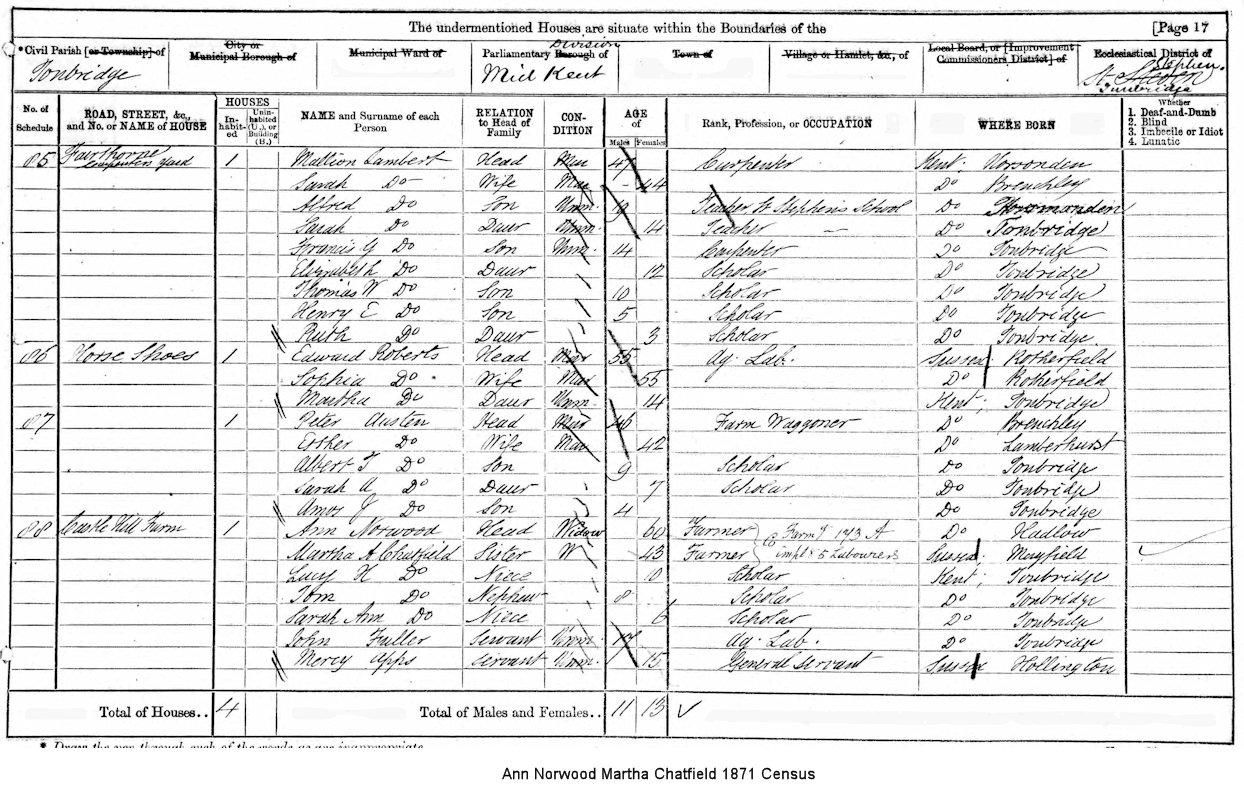 The undermentioned Houses are situate within the Boundaries of the [Page 17
*Civil Parish [or Township] of City or Municipal Borough of Municipal Ward of Parliamentary Borough of Division Town of Village or Hamlet, &c., of Local Board, or [Improvement Commissioners District] of Ecclesiastical District of
Tonbridge Mid Kent St. Stephen. Tunbridge
No. of Schedule ROAD, STREET, &c., and No. or NAME of HOUSE HOUSES Inhabited Uninhabited (U.), or Building (B.) NAME and Surname of each Person RELATION to Head of Family CONDITION AGE of Males Females Rank, Profession, or OCCUPATION WHERE BORN Whether 1. Deaf-and-Dumb 2. Blind 3. Imbecile or Idiot 4. Lunatic
85 Fairthorne yard 1 Lambert Head Mar 47 Carpenter Kent;
Sarah Do Wife Mar 44 Do Brenchley
Alfred Do Son Unm. 19 Teacher St Stephens School Do
Sarah Do Daur Unm. Teacher Do Tonbridge
Francis G Do Son Unm. 14 Carpenter Do Tonbridge
Elizabeth Do Daur 12 Scholar Do Tonbridge
Thomas W Do Son 10 Scholar Do Tonbridge
Henry E Do Son 5 Scholar Do Tonbridge
Ruth Do Daur 3 Scholar Do Tonbridge
86 Horse Shoes 1 Edward Roberts Head Mar 55 Ag. Lab. Sussex Rotherfield
Sophia Do Wife Mar 55 Do Rotherfield
Martha Do Daur Unm. 14 Kent; Tonbridge
87 1 Peter Austen Head Mar 46 Farm Waggoner Do Brenchley
Esther Do Wife Mar 42 Do Lamberhurst
Albert T Do Son 9 Scholar Do Tonbridge
Sarah A Do Daur 7 Scholar Do Tonbridge
Amos J Do Son 4 Do Tonbridge
88 Castle Hill Farm 1 Ann Norwood Head Widow 60 Farmer Farm of 173 A Do Hadlow
Martha A Chatfield Sister W 43 Farmer empl. 5 Labourers Sussex; Mayfield
Lucy H Do Niece 10 Scholar Kent; Tonbridge
Tom Do Nephew 8 Scholar Do Tonbridge
Sarah Ann Do Niece 6 Scholar Do Tonbridge
John Fuller Servant Unm. 17 Ag. Lab. Do Tonbridge
Mercy Apps Servant Unm. 15 General Servant Sussex Hollington
Total of Houses.. 4 Total of Males and Females.. 11 13
Ann Norwood Martha Chatfield 1871 Census